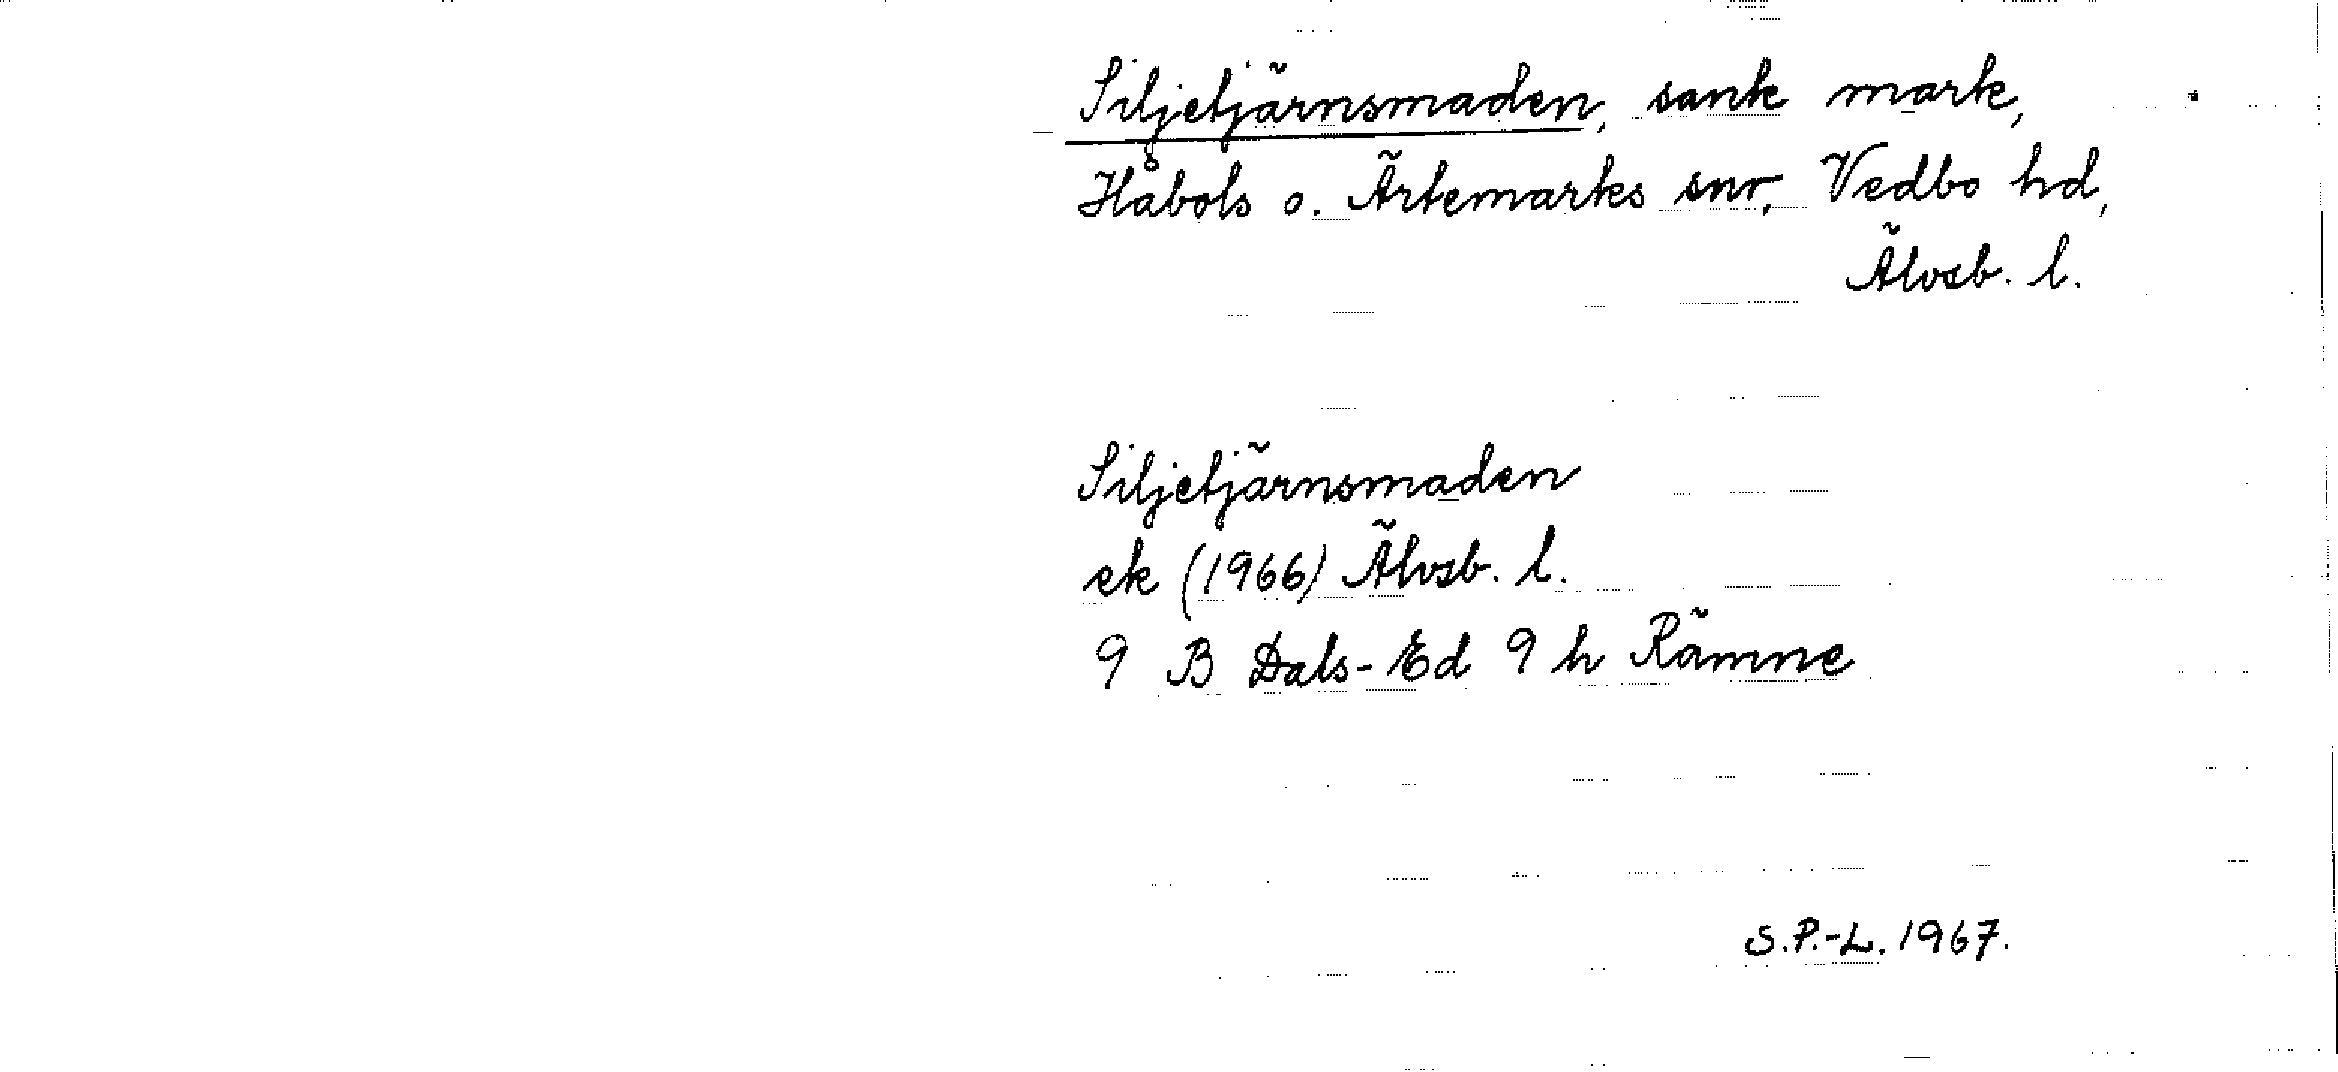 Siljetjärnsmaden, sank mark,
Håbols o. Ärtemarks snr, Vedbo hd,
Älvsb. l.
Siljetjärnsmaden
ek (1966) Älvsb. l.
9 B Dals-Ed 9 h Rämne
S.P.-L. 1967.